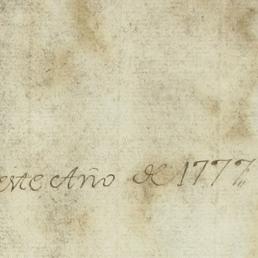 este Año de 1777,,